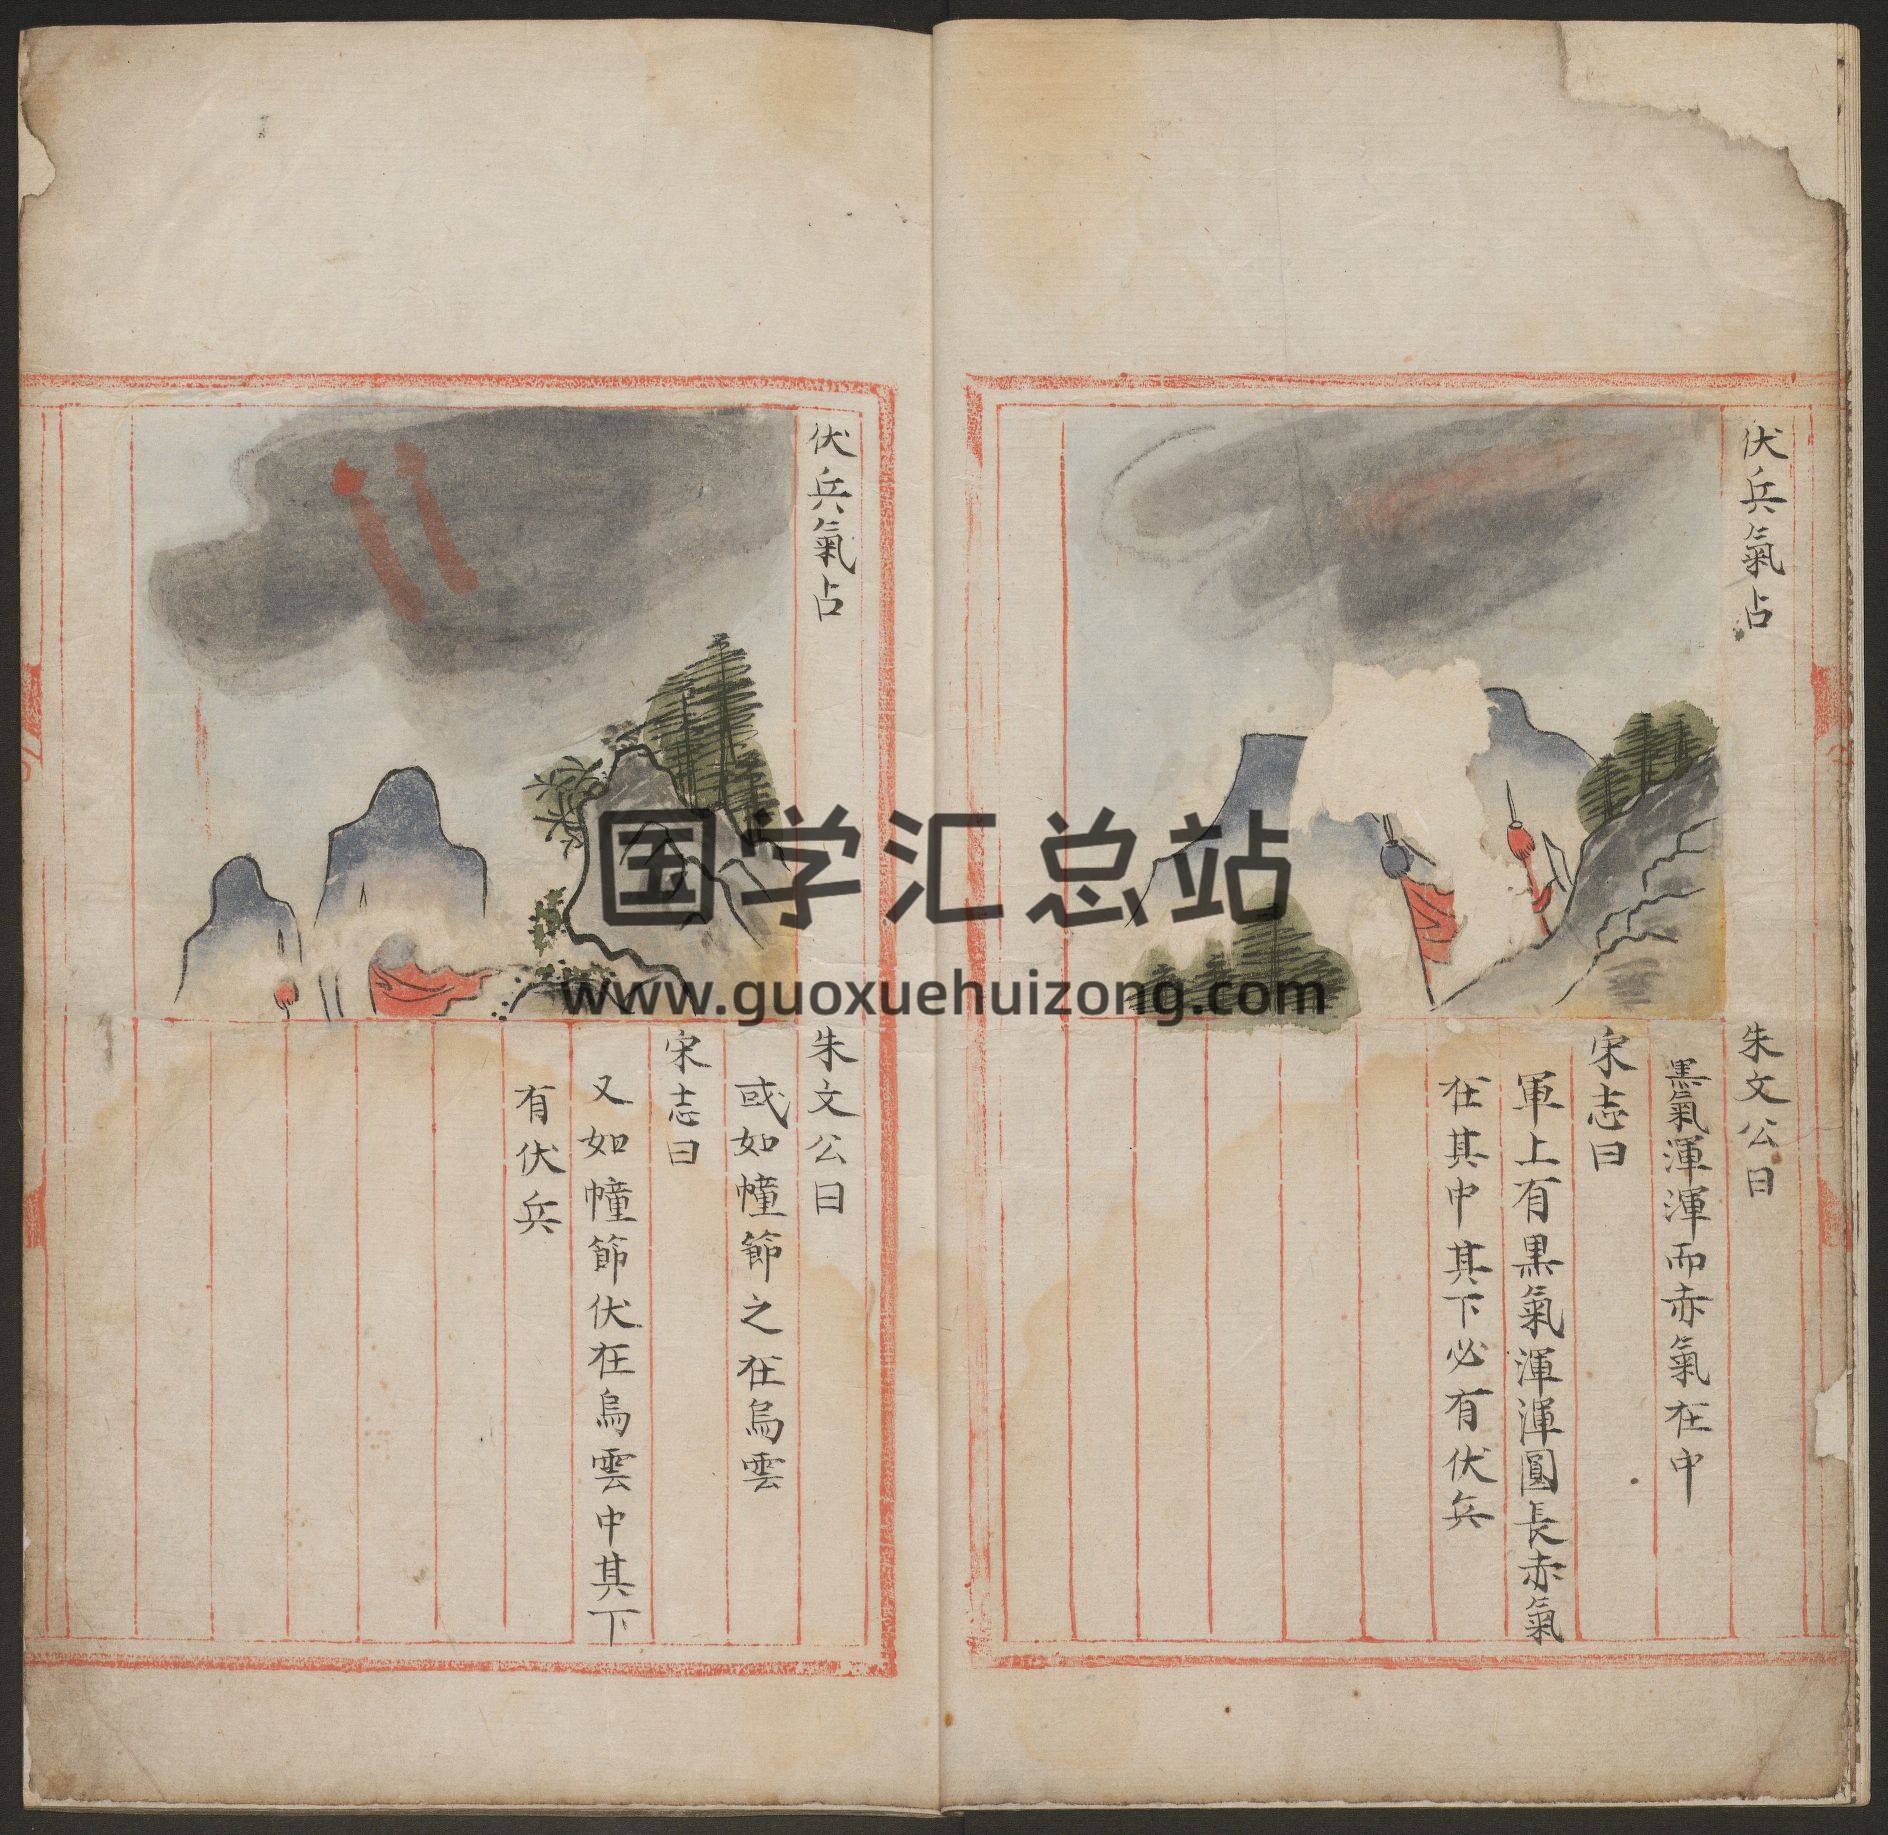 伏兵氣占
朱文公曰
黑氣渾渾而赤氣在中
宋志曰
軍上有黒氣渾渾圓長赤氣
在其中其下必有伏兵
伏兵氣占
朱文公曰
或如幢節之在烏雲
宋志曰
又如幢節伏在烏雲中其下
有伏兵
国学汇总站
www.guoxuehuizong.com